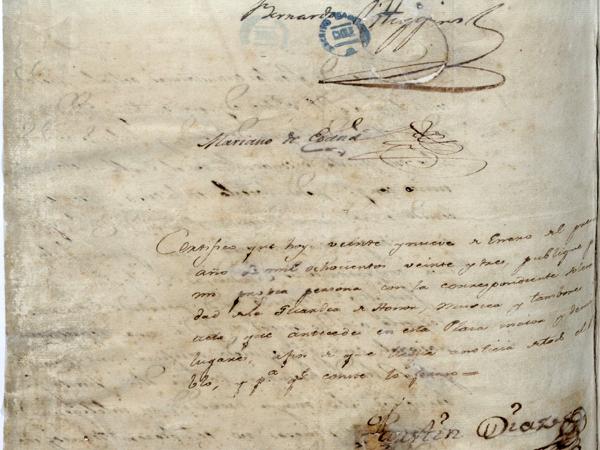 Bernardo O'Higgins
CHILE
Mariano de Egaña
Certifico que hoy veinte y nueve de Enero del pres
año de mil ochocientos veinte y tres, publique p
mi propia persona con la correspondiente solem
dad de la Guardia de Honor, Musica y tambores
acta, que antecede en esta Plaza mayor y demas
lugares, afin de que
blo, y pª qe conste lo firmo
Agustin Diaz